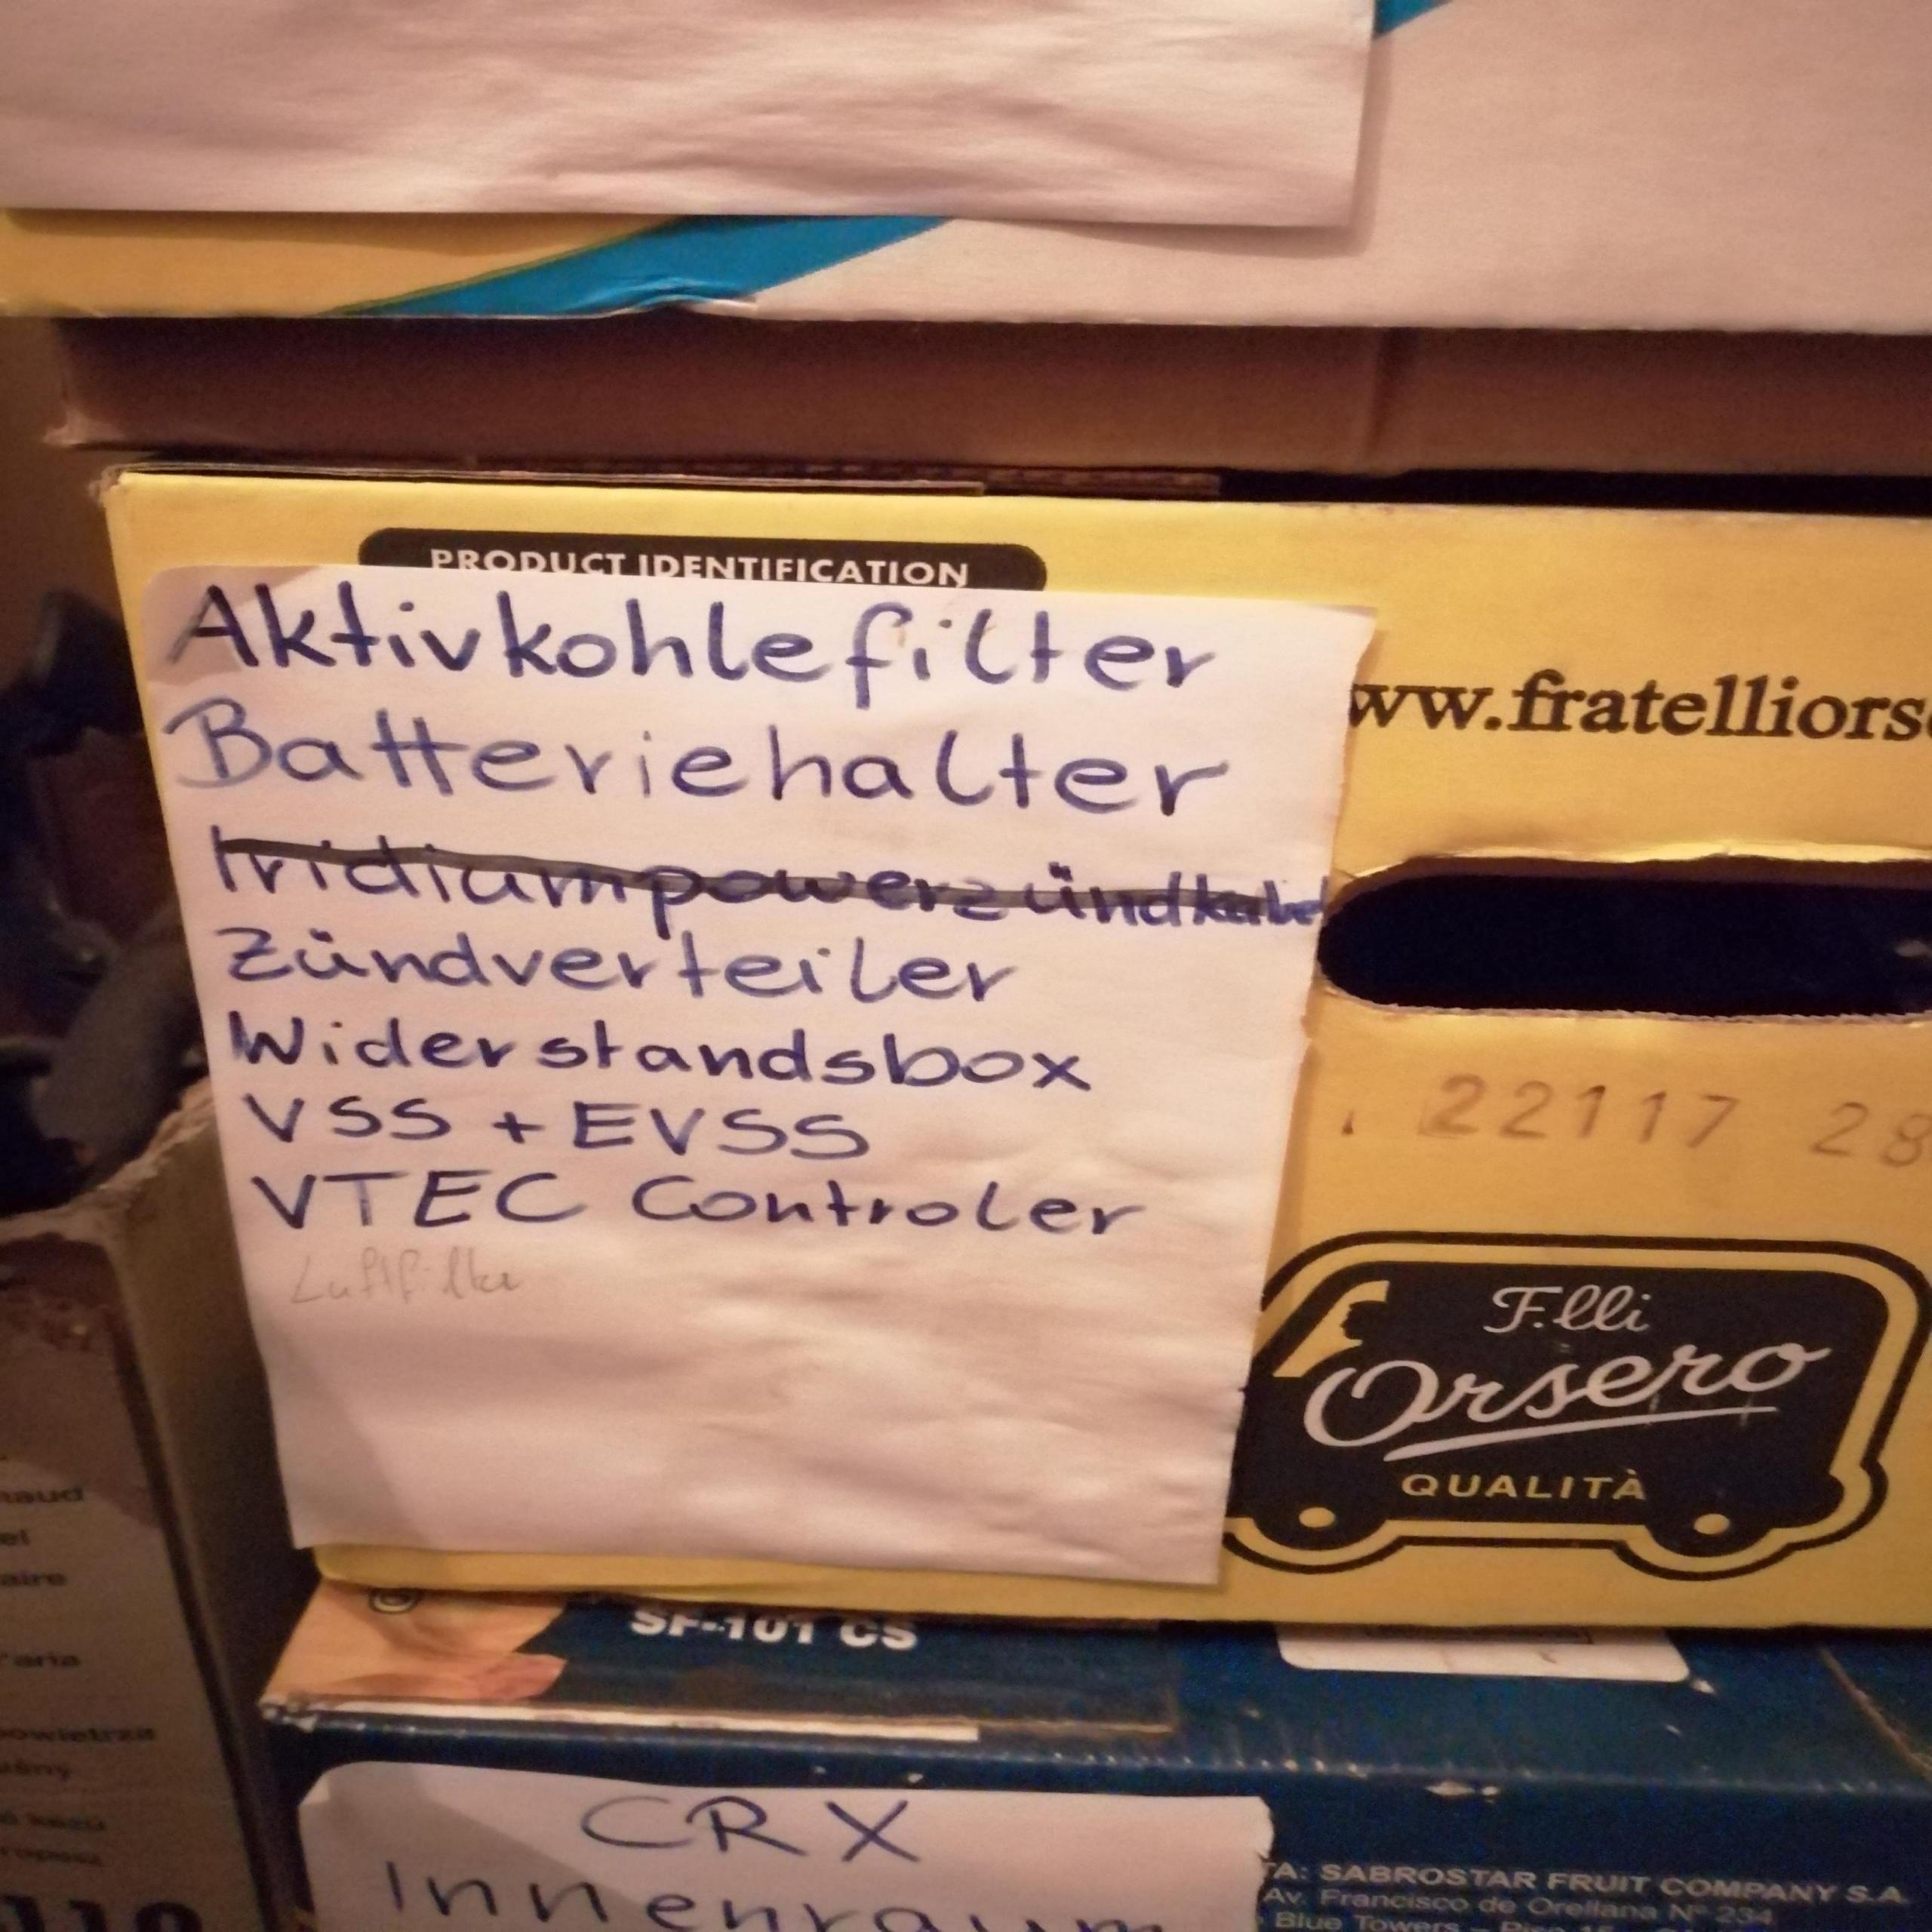 PRODUCT IDENTIFICATION
Aktivkohlefilter
Batteriehalter
Iridiumpowerzündkabel
Zündverteiler
Widerstandsbox
VSS + EVSS
VTEC Controler
Luftfilter
ww.fratelliors
22117 28
F.lli
Orsero
QUALITÀ
SF-101 CS
CRX
Innenraum
TA: SABROSTAR FRUIT COMPANY S.A.
Av. Francisco de Orellana Nº 234
Blue Towers – Piso 15
naud
el
aire
'aria
owietrza
110